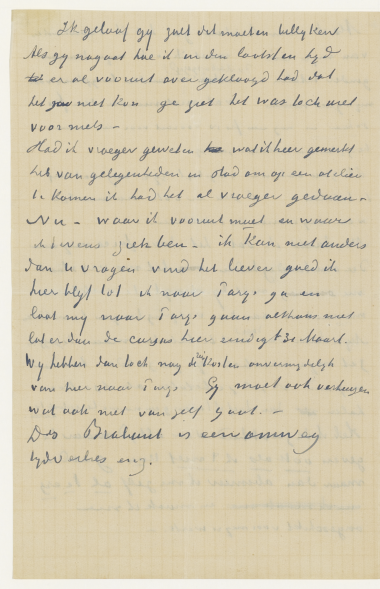 Ik geloof gy zult dit moeten billyken
Als gy nagaat hoe ik in den laatsten tyd
er al vooruit over geklaagd had dat
het zoo niet kon ge ziet het was toch niet
voor niets –
Had ik vroeger geweten wat ik hier gemerkt
het van gelegenheden in stad om op een atelier
te komen ik had het al vroeger gedaan –
Nu – waar ik vooruit moet en waar
ik tevens ziek ben – ik kan niet anders
dan U vragen vind het liever goed ik
hier blyf tot ik naar Parys ga en
laat my naar Parys gaan althans niet
later dan de cursus hier eindigt 31 Maart.
Wy hebben dan toch nog die reiskosten onvermydelyk
van hier naar Parys Gy moet ook verhuizen
wat ook niet van zelf gaat. –
Dus Brabant is een omweg
tydverlies enz.